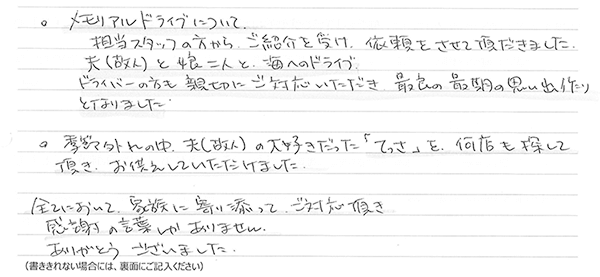 。メモリアルドライブについて.
担当スタッフの方から、ご紹介を受け、依頼をさせて頂だきました.
夫(故人)と娘二人と、海へのドライブ.
ドライバーの方も親切にご対応いただき、最良の最期の思い出作り
となりました.
。季節外れの中、夫(故人)の大好きだった「てっさ」を、何店も探して
頂き、お供えしていただけました.
全てにおいて、家族に寄り添って、ご対応頂き
感謝の言葉しかありません.
ありがとうございました.
(書ききれない場合には、裏面にご記入ください)